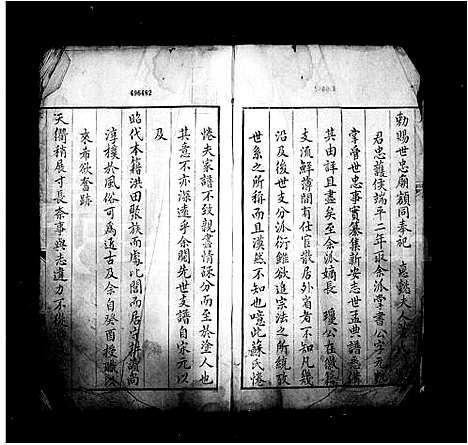 勅賜世忠廟額同奉祀 惠懿夫人
君忠護侯端平二年承派堂書公字元
掌管世忠事實纂集新安志世孟典譜悉備
其由詳且盡矣至余派嫡長 瓊公在儀籍
支流鮮薄間有仕宦散居外省者不知凡幾
沿及後世支分派衍雖欲追宗法之所統攷
世系之所稱而且漠然不知也噫此蘇氏惓
惓夫家譜不致親盡情疎分而至於塗人也
其意不亦深遠乎余閱先世支譜自宋元以
及
昭代本籍洪田聚族而處比閭而居守耕讀尚
淳樸於風俗可為近古及余自癸酉授職以
來希欲奮跡
天衢稍展寸長奈事與志違力不從
496482